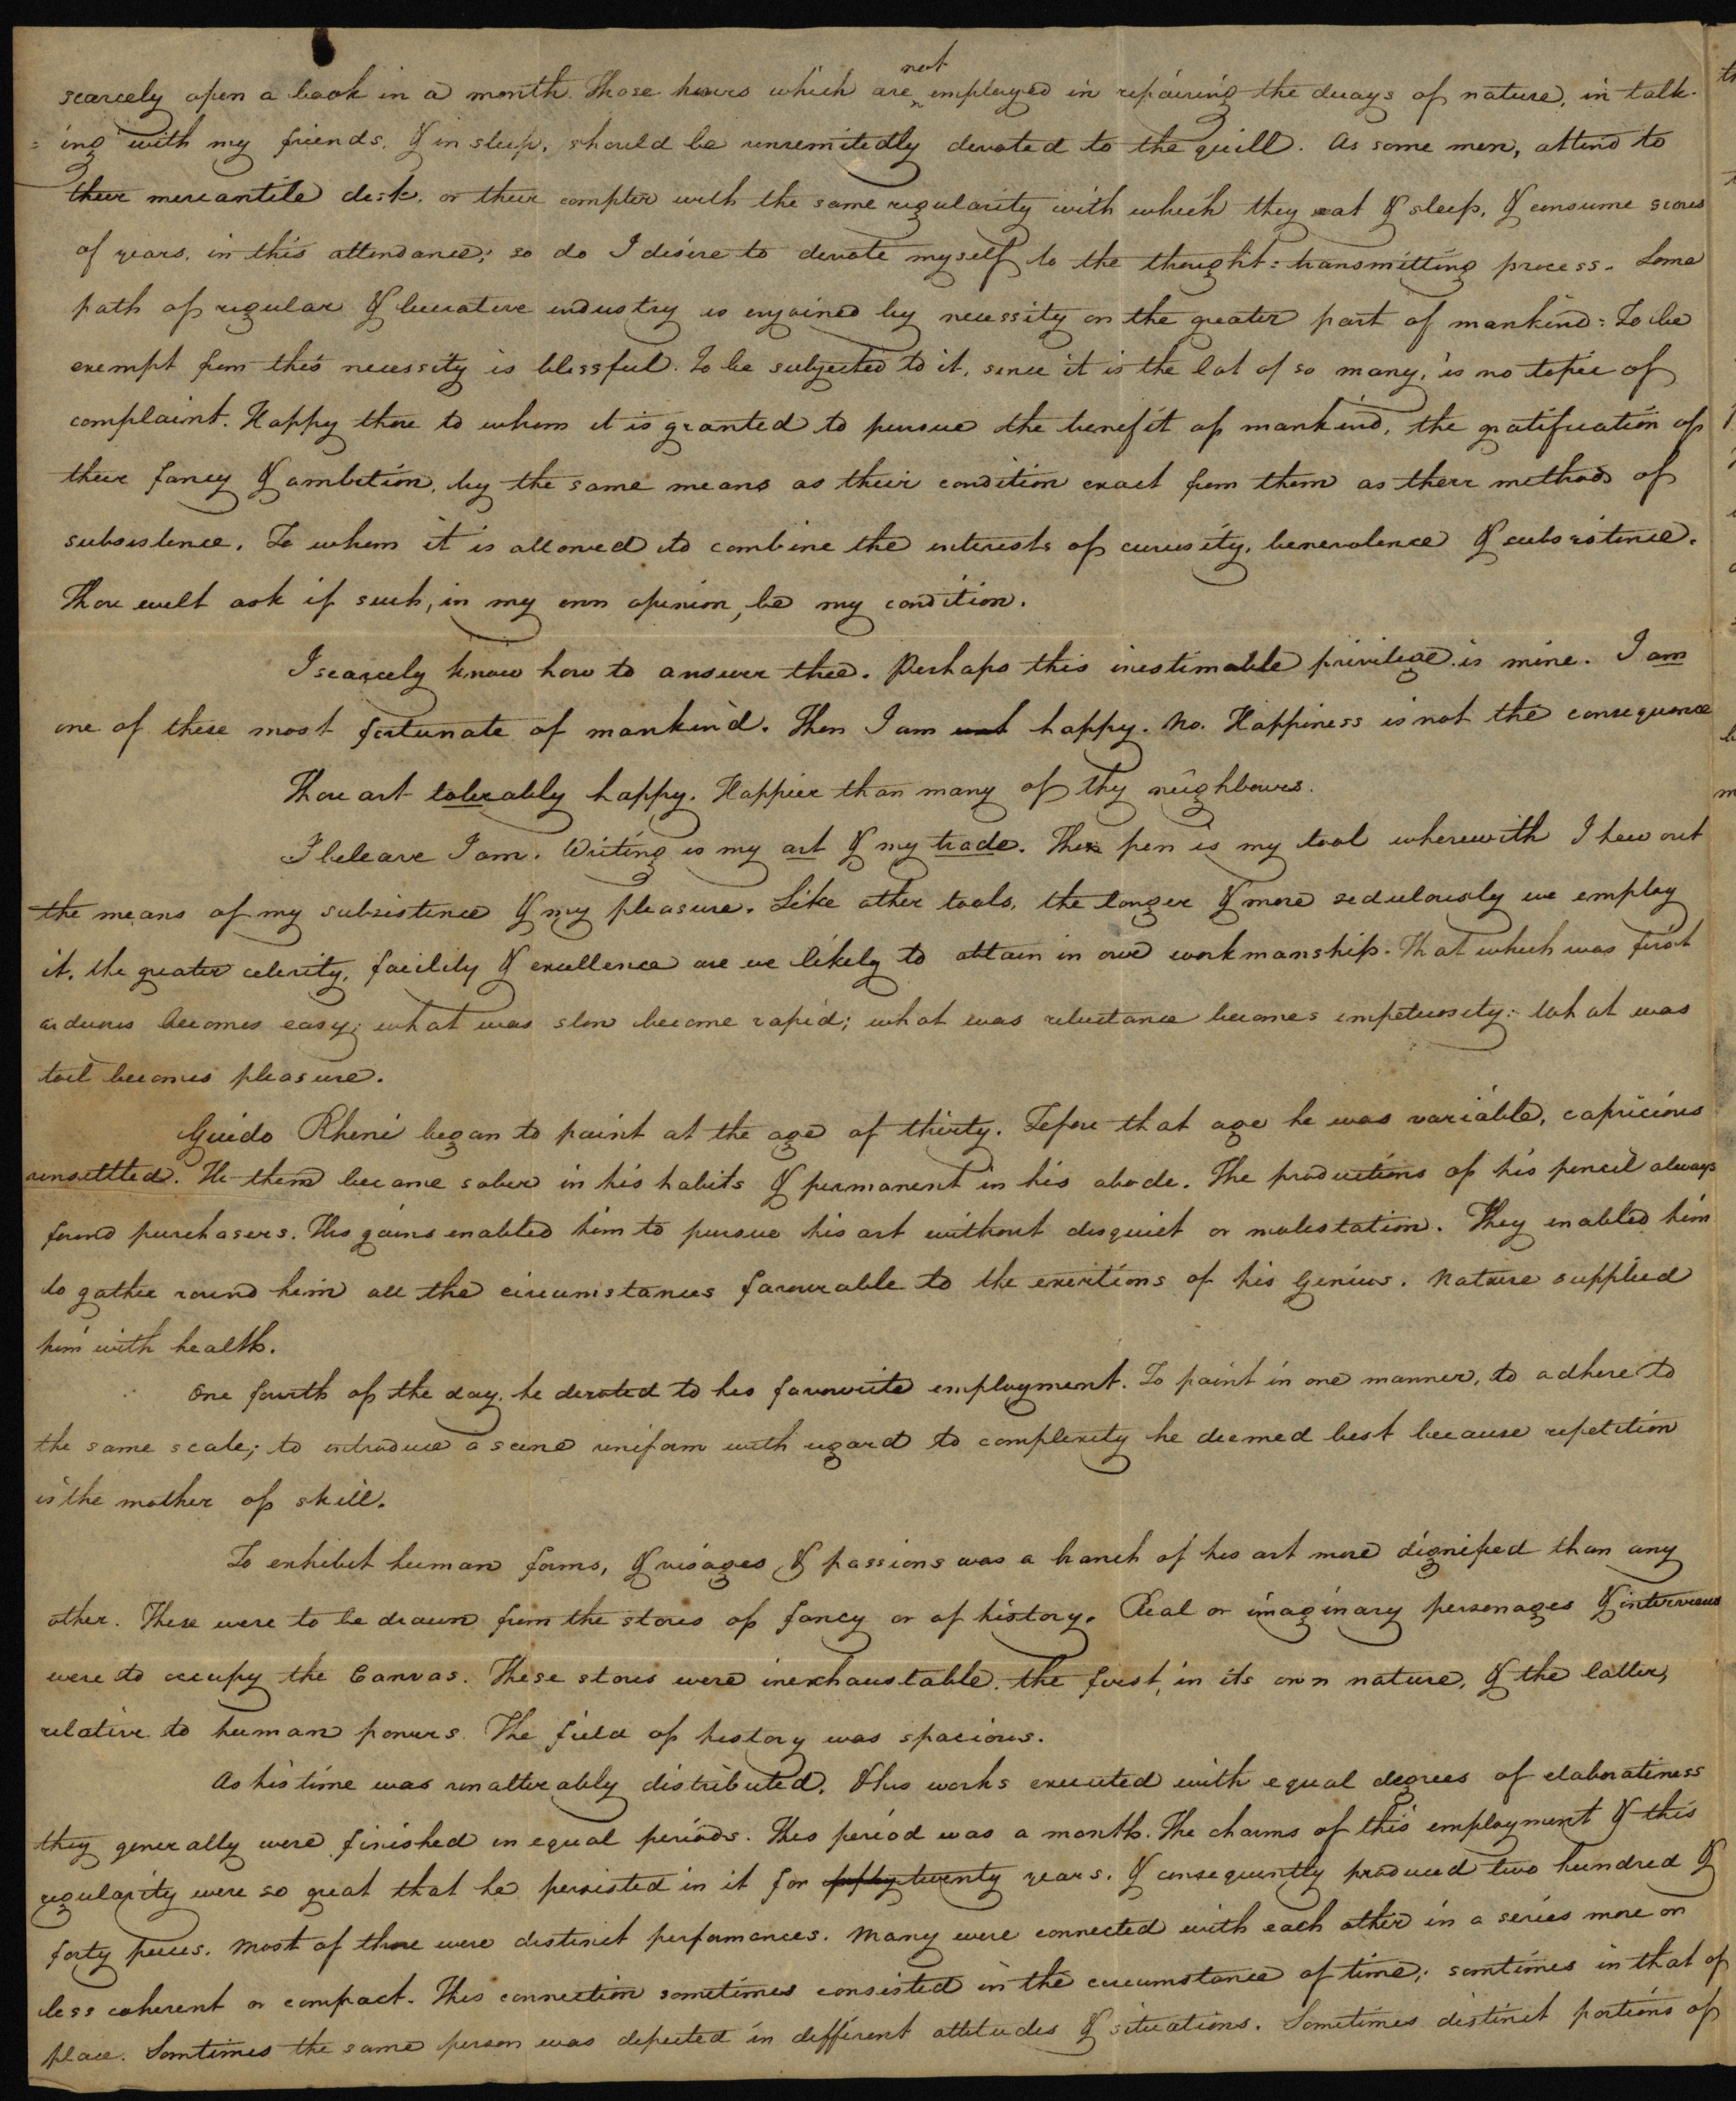 scarcely open a book in a month. Those hours which are not employed in repairing the decays of nature, in talk-
= ing with my friends, & in sleep, should be unremitedly devoted to the quill. As some men, attend to
their mercantile desk, or their compter with the same regularity with which they eat & sleep, & consume scores
of years, in this attendance; so do I desire to devote myself to the thought=transmitting process. Some
path of regular & lucrative industry is enjoined by necessity on the greater part of mankind: To be
exempt from this necessity is blissful. To be subjected to it, since it is the lot of so many, is no topic of
complaint. Happy those to whom it is granted to pursue the benefit of mankind, the gratification of
their fancy & ambition, by the same means as their condition exact from them as their methods of
subsistence. To whom it is allowed to combine the interests of curiosity, benevolence & subsistence.
Thou wilt ask if such, in my own opinion, be my condition.
I scarcely know how to answer thee. Perhaps this inestimable privilege is mine. I am
one of these most fortunate of mankind. Then I am happy. No. Happiness is not the consequence
Thou art tolerably happy. Happier than many of thy neighbours.
I beleave I am. Writing is my art & my trade. The pen is my tool wherewith I hew out
the means of my subsistence & my pleasure. Like other tools, the longer & more sedulously we employ
it, the greater celerity, facility & excellence are we likely to attain in our workmanship. That which was first
arduous becomes easy; what was slow become rapid; what was reluctance becomes impetuosity: what was
toil becomes pleasure.
Guido Rheni began to paint at the age of thirty. Before that age he was variable, capricious
unsettled. He then became sober in his habits & permanent in his abode. The productions of his pencil always
found purchasers. His gains enabled him to pursue his art without disquiet or molestation. They enabled him
to gather round him all the circumstances favourable to the exertions of his Genius. Nature supplied
him with health.
One fourth of the day, he devoted to his favourite employment. To paint in one manner, to adhere to
the same scale; to introduce a scene uniform with regard to complexity he deemed best because repetition
is the mother of skill.
To exhibit human forms, & visages & passions was a branch of his art more dignified than any
other. These were to be drawn from the stores of fancy or of history. Real or imaginary personages & interviews
were to occupy the Canvas. These stores were inexhaustable, the first, in its own nature, & the latter,
relative to human powers. The field of history was spacious.
As his time was unalterably distributed, & his works executed with equal degrees of elaborateness
they generally were finished in equal periods. This period was a month. The charms of this employment & this
regularity were so great that he persisted in it for fifty twenty years, & consequently produced two hundred &
forty pieces. Most of those were distinct performances. Many were connected with each other in a series more or
less coherent or compact. This connection sometimes consisted in the circumstance of time; somtimes in that of
place. Somtimes the same person was depicted in different attitudes & situations. Sometimes distinct portions of